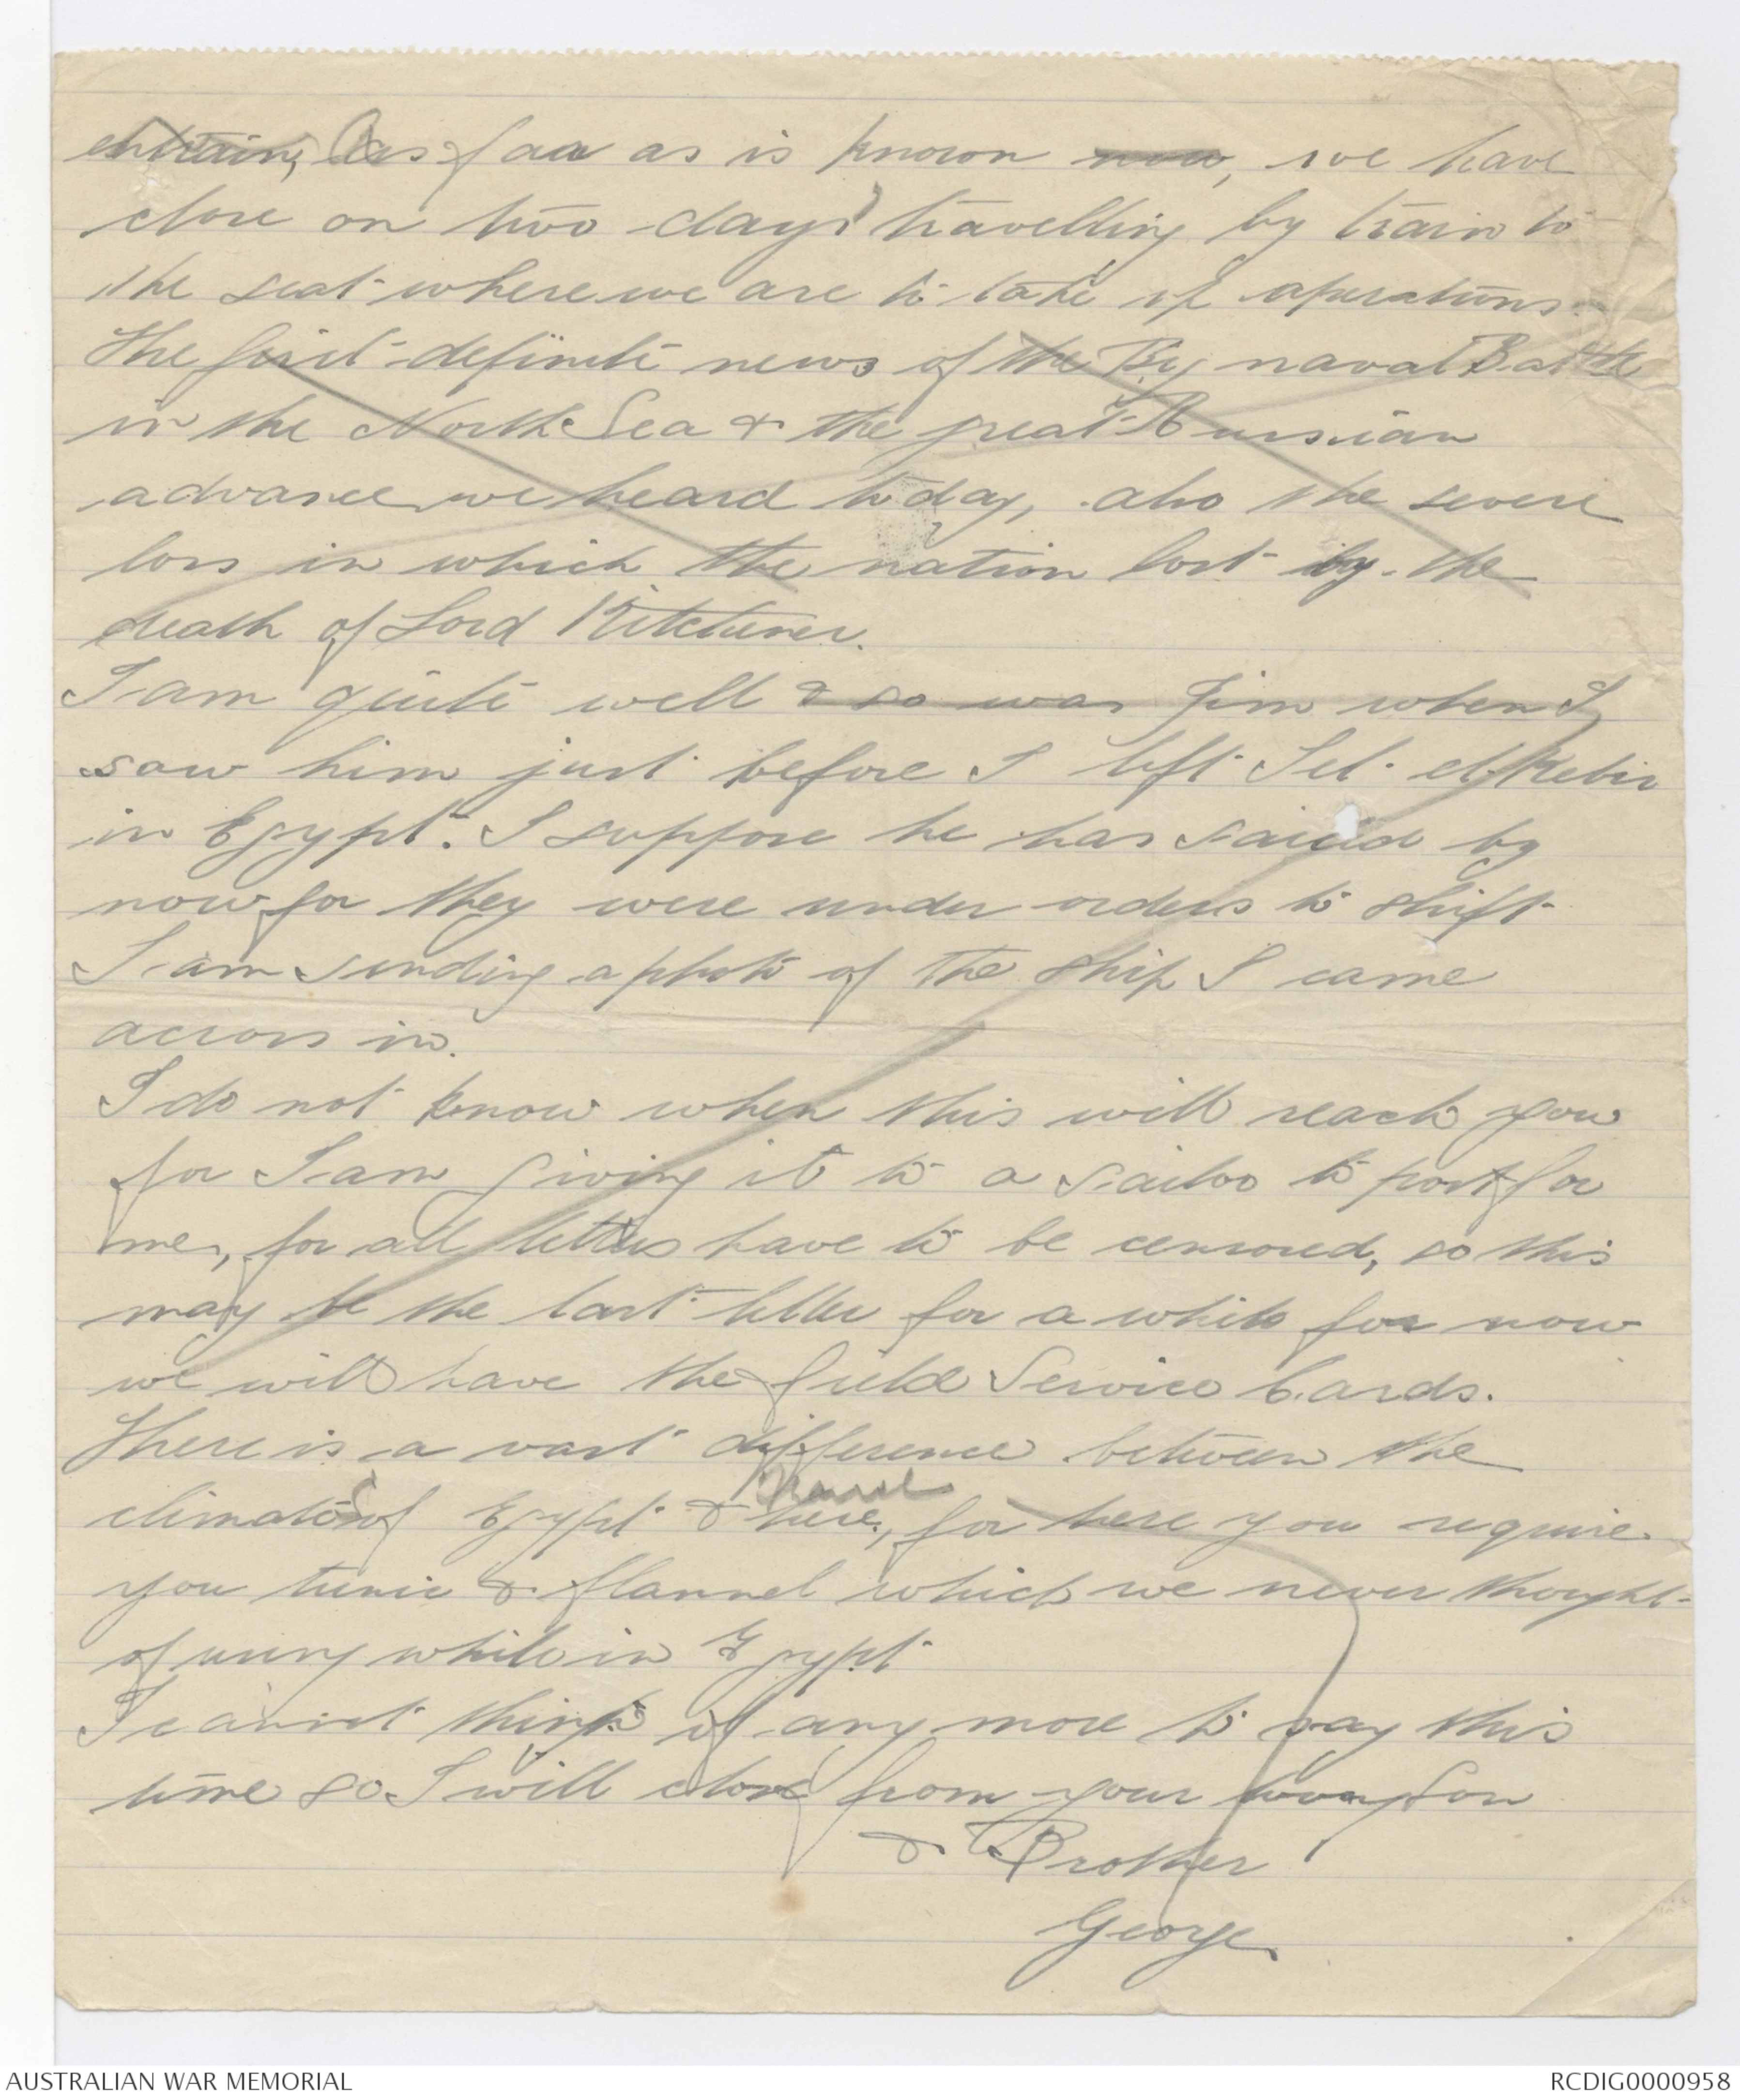 entrain, As far as is known now, we have
close on two days' travelling by train to
the seat where we are to take up operations.
The first definite news of the Big naval Battle
in the North Sea & the great Russian
advance we heard today, also the severe
loss in which the nation lost by the
death of Lord Kitchener.
I am quite well & so was Jim when I
saw him just before I left Tel-el-Kebir
in Egypt. I suppose he has sailed by
now for they were under orders to shift
I am sending a photo of the ship I came
across in.
I do not know when this will reach you
for I am giving it to a sailor to post for
me, for all letters have to be censored, so this
may be the last letter for a while for now
we will have the field Service Cards.
There is a vast difference between the
climates of Egypt & here, France
for here you require
you tunic & flannel which we never thought
of using while in Egypt
I cannot think of any more to say this
time so I will close from your loving Son
& Brother
George.
AUSTRALIAN WAR MEMORIAL
RCDIG0000958